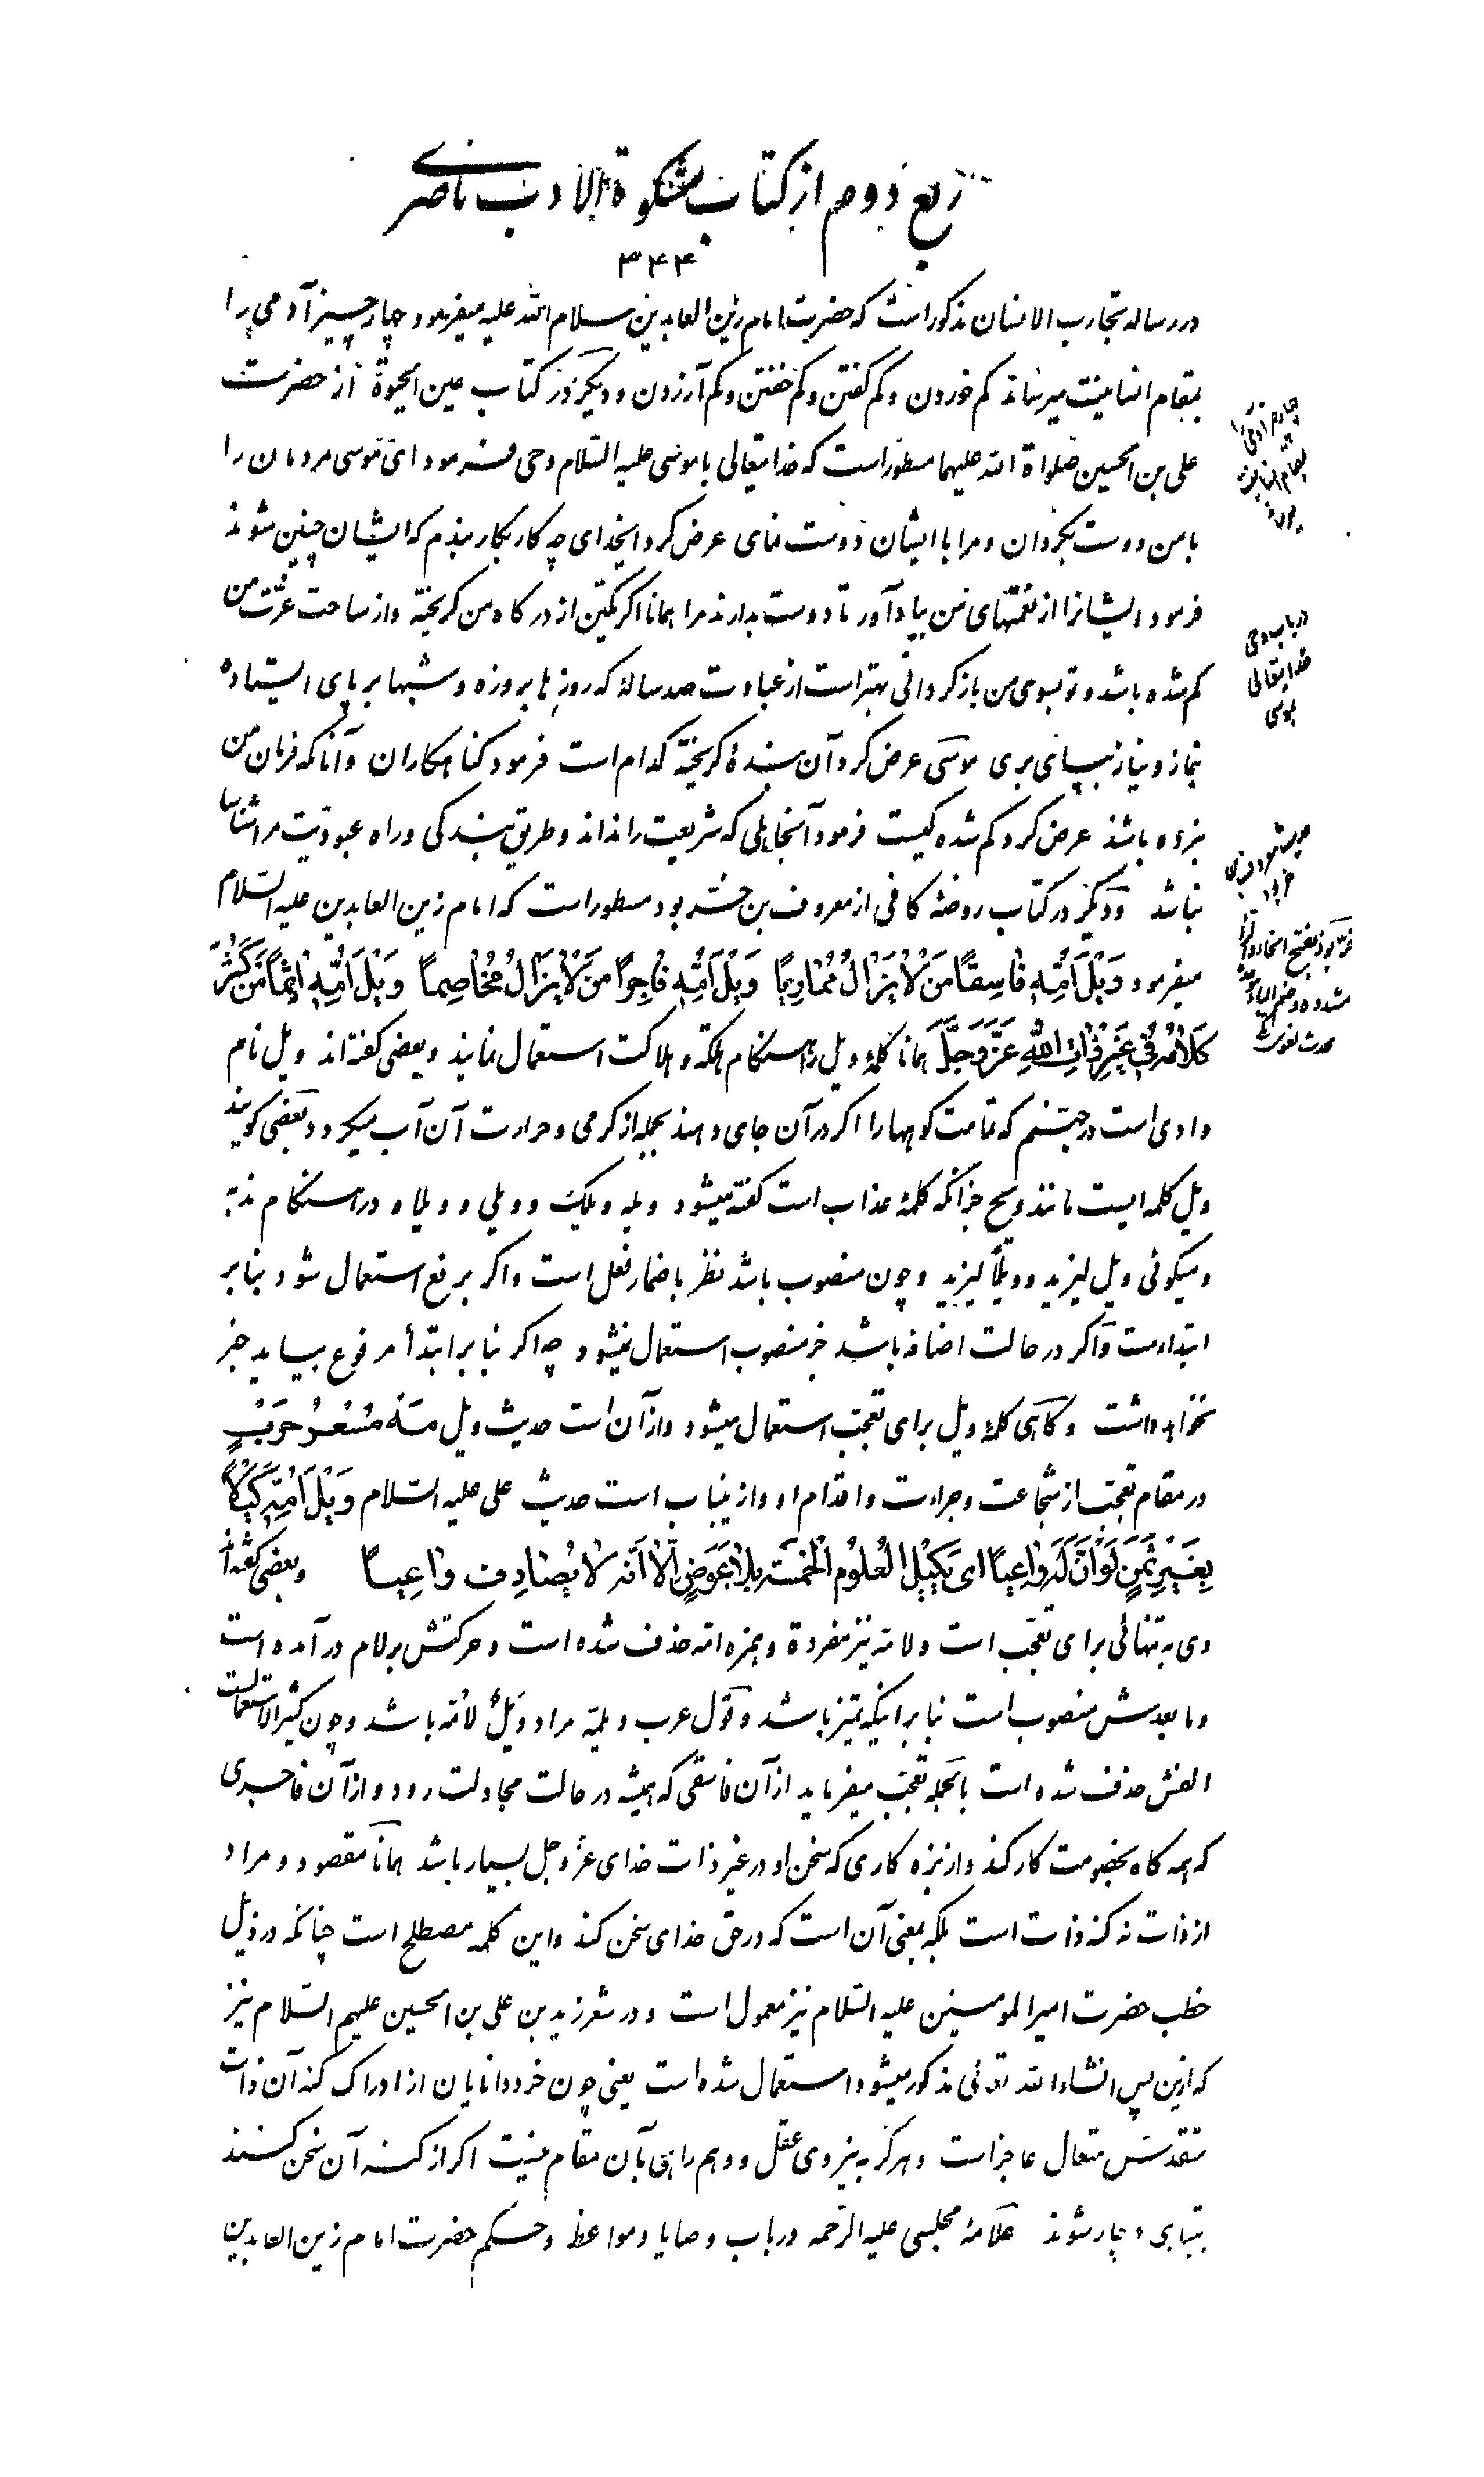 ربع دوم از کتاب مشکوة الادب ناصری
۳۴۴
در رساله تجارب الانسان مذکور است که حضرت امام زین العابدین سلام الله علیه میفرمود چهار چیز آدمی را
بمقام انسانیت میرساند کم خوردن و کم گفتن و کم خفتن و کم آزردن و دیگر در کتاب عین الحیوة از حضرت
علی بن الحسین صلواة الله علیهما مسطور است که خدایتعالی با موسی علیه السلام وحی فرمود ای موسی مردمان را
با من دوست بگردان و مرا با ایشان دوست نمای عرض کرد ایخدای چه کار بکار بندم که ایشان چنین شوند
فرمود ایشانرا از نعمتهای من بیاد آور تا دوست بدارند مرا همانا اگر یکتن از درگاه من گریخته و از ساحت عزت من
گم شده باشد و تو بسوی من باز گردانی بهتر است از عبادت صد ساله که روزها بروزه و شبها بر پای ایستاده
بنماز و نیاز بپای بری موسی عرض کرد آن بنده گریخته کدام است فرمود گناهکاران و آنانکه فرمان من
نبرده باشند عرض کرد گم شده کیست فرمود آنجاهلی که شریعت را نداند و طریق بندگی و راه عبودیت مرا شناسا
نباشد و دیگر در کتاب روضه کافی از معروف بن خربود مسطور است که امام زین العابدین علیه السلام
میفرمود وَیْلُ اُمِّهِ فاسِقًا مَنْ لا یَزالُ مُمارِیًا وَیْلُ اُمِّهِ فاجِرًا مَنْ لا یَزالُ مُخاصِمًا وَیْلُ اُمِّهِ اثِمًا مَنْ کَثُرَ
کَلامُهُ فی غَیْرِ ذاتِ اللهِ عَزَّ وَجَلَّ همانا کلمه ویل را هنگام هلکه و هلاکت استعمال نمایند و بعضی گفته‌اند ویل نام
وادی است در جهنم که تمامت کوهها را اگر در آن جای دهند بجمله از گرمی و حرارت آن آب میگردد و بعضی گویند
ویل کلمه ایست مانند ویح جز آنکه کلمه عذاب است گفته میشود ویله و ویلک و ویلی و ویلاه و در هنگام ندبه
و میگوئی ویل لیزید و ویلاً لیزید و چون منصوب باشد نظر باضمار فعل است و اگر برفع استعمال شود بنابر
ابتداء است و اگر در حالت اضافه باشد جز منصوب استعمال نمیشود چه اگر بنا بر ابتدأ مرفوع بیاید خبر
نخواهد داشت و گاهی کلمه ویل برای تعجب استعمال میشود و از آن است حدیث ویل مه مُسْعِرُ حَرْبٍ
در مقام تعجب از شجاعت و جراءت و اقدام او و از ینباب است حدیث علی علیه السلام وَیْلُ اُمِّهِ کَیْلاً
بِغَیْرِ ثَمَنٍ لَوْ اَنَّ لَهُ واعِیًا ای یَکیلُ العُلُومَ الْجَمَّةَ بِلا عِوَضٍ اِلّا اَنَّهُ لا یُصادِفُ واعِیًا و بعضی گفته‌اند
وی به تنهائی برای تعجب است و لامه نیز مفردة و همزه امه حذف شده است و حرکتش بر لام در آمده است
و ما بعدش منصوب است بنا بر اینکه تمیز باشد و قول عرب ویلمه مراد وَیْلٌ لِاُمِّهِ باشد و چون کثیر الاستعمالست
الفش حذف شده است بالجمله تعجب میفرماید از آن فاسقی که همیشه در حالت مجادلت رود و از آن فاجری
که همه گاه بخصومت کار کند و از بزه کاری که سخن او در غیر ذات خدای عز و جل بسیار باشد همانا مقصود و مراد
از ذات نه کنه ذات است بلکه بمعنی آن است که در حق خدای سخن کند و این کلمه مصطلح است چنانکه در ذیل
خطب حضرت امیر المومنین علیه السلام نیز معمول است و در شعر زید بن علی بن الحسین علیهم السلام نیز
که ازین پس انشاء الله تعالی مذکور میشود استعمال شده است یعنی چون خرد دانایان از ادراک کنه آن ذات
مقدس متعال عاجز است و هرگز به نیروی عقل و وهم راهی بآن مقام نیست اگر از کنه آن سخن کنند
بتباهی دچار شوند علامه مجلسی علیه الرحمه در باب وصایا و مواعظ و حکم حضرت امام زین العابدین
چهار چیز آدمی را
بمقام انسانیت
در باب وحی
خدایتعالی
بموسی
خربوذ بفتح الخاء والراء
مشدده وضم الباء